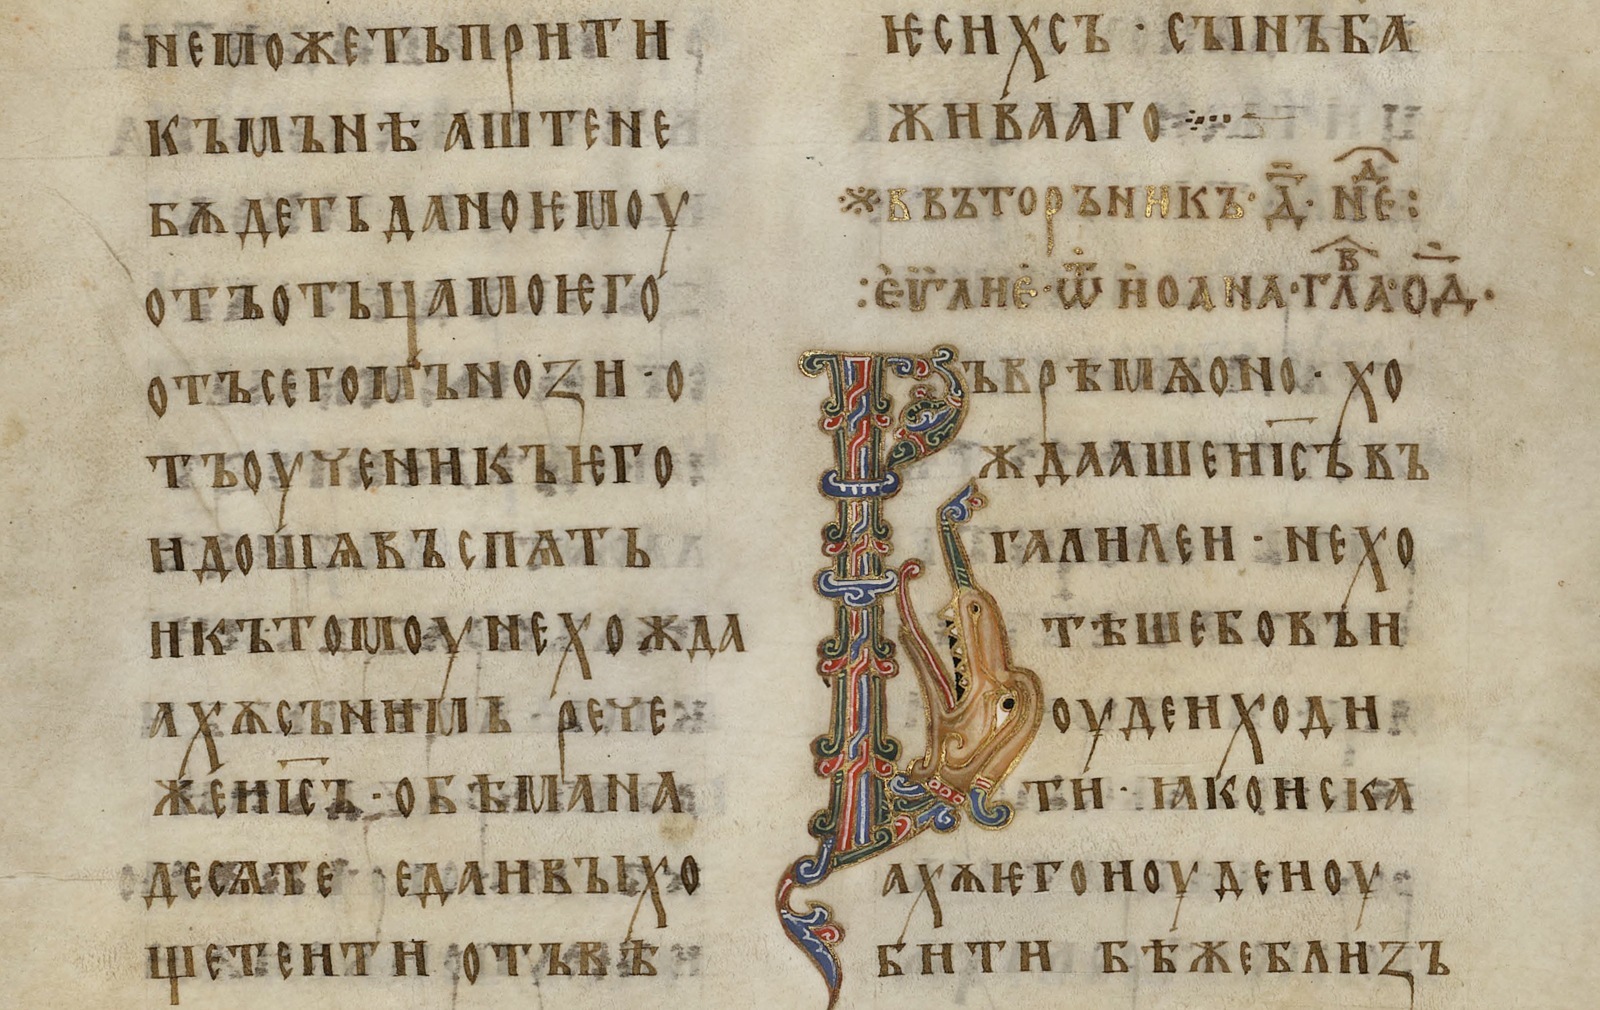 неможетьприти
къмънѣ аштене
бѫдетьданоѥмоу
отъотьцамоѥго
отъсегомъноꙁи · о
тъоученикъѥго
идошѧвъспѧть
икътомоунехожда
ахѫсънимь рече
жеиі҃съ · обѣмана
десѧте едаивꙑхо
щетеити отъвѣ
ѥсихсъ · сꙑнъба
живааго
※ввъторъникъ · д҃ · неⷣ :
: еѵ꙼лие · ѿ иоана · глаⷡ · од҃ ·
Въврѣмѧоно · хо
ждаашеиі҃съвъ
галилеи · нехо
тѣшебовъи
оудеиходи
ти · ꙗкоиска
ахѫѥгоиоудеиоу
бити бѣжеблиꙁъ